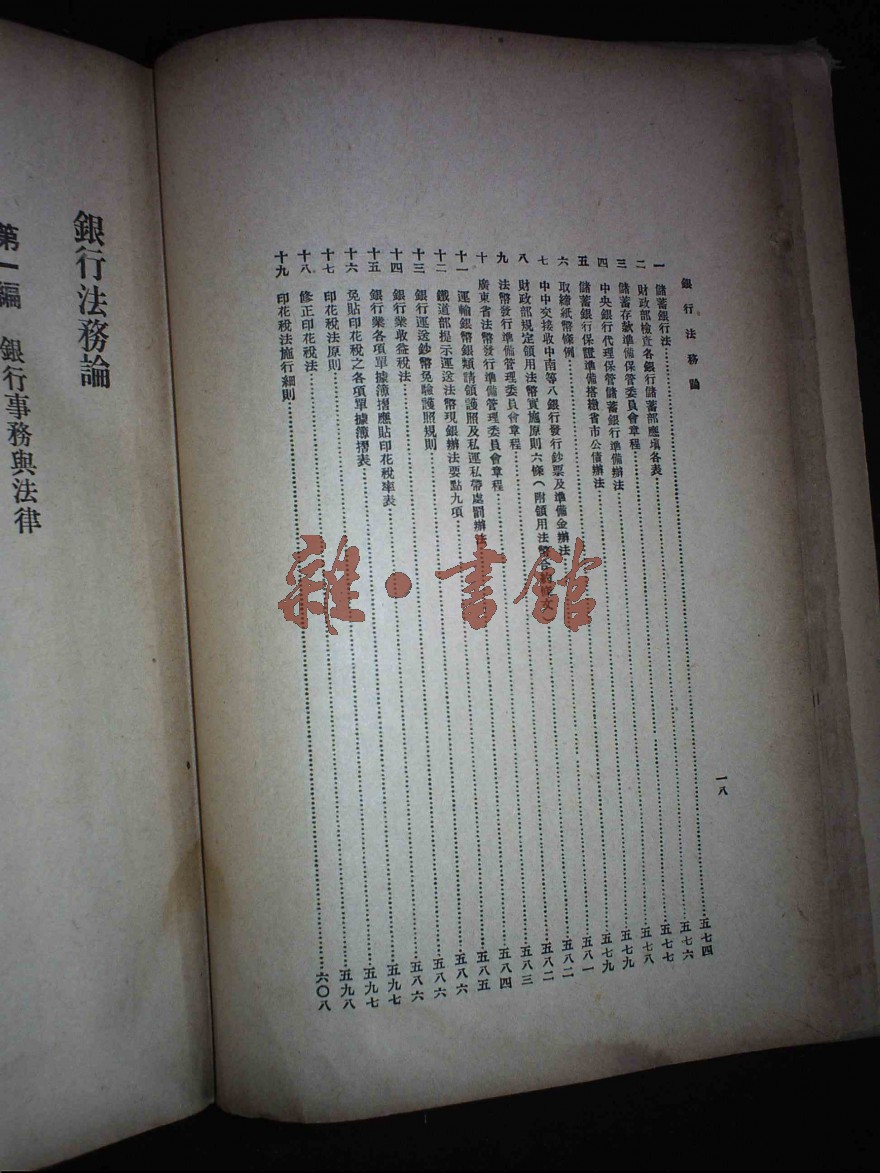 銀行法務論
一 儲蓄銀行法……五七四
二 財政部檢查各銀行儲蓄部應填各表……五七六
三 儲蓄存款準備保管委員會章程……五七七
四 中央銀行代理保管儲蓄銀行準備辦法……五七八
五 儲蓄銀行保證準備搭繳省市公債辦法……五七九
六 取締紙幣條例……五七九
七 中中交接收中南等八銀行發行鈔票及準備金辦法……五八一
八 財政部規定領用法幣實施原則六條(附領用法幣文……五八二
九 法幣發行準備管理委員會章程……五八二
十 廣東省法幣發行準備管理委員會章程……五八三
十一 運輸銀幣銀類請領護照及私運私帶處罰辦法……五八四
十二 鐵道部提示運送法幣現銀辦法要點九項……五八五
十三 銀行運送鈔幣免驗護照規則……五八六
十四 銀行業收益稅法……五八六
十五 銀行業各項單據簿摺應貼印花稅率表……五八六
十六 免貼印花稅之各項單據簿摺表……五九七
十七 印花稅法原則……五九七
十八 修正印花稅法……五九八
十九 印花稅法施行細則……六〇八
一八
銀行法務論
第一編 銀行事務與法律
雜·書館